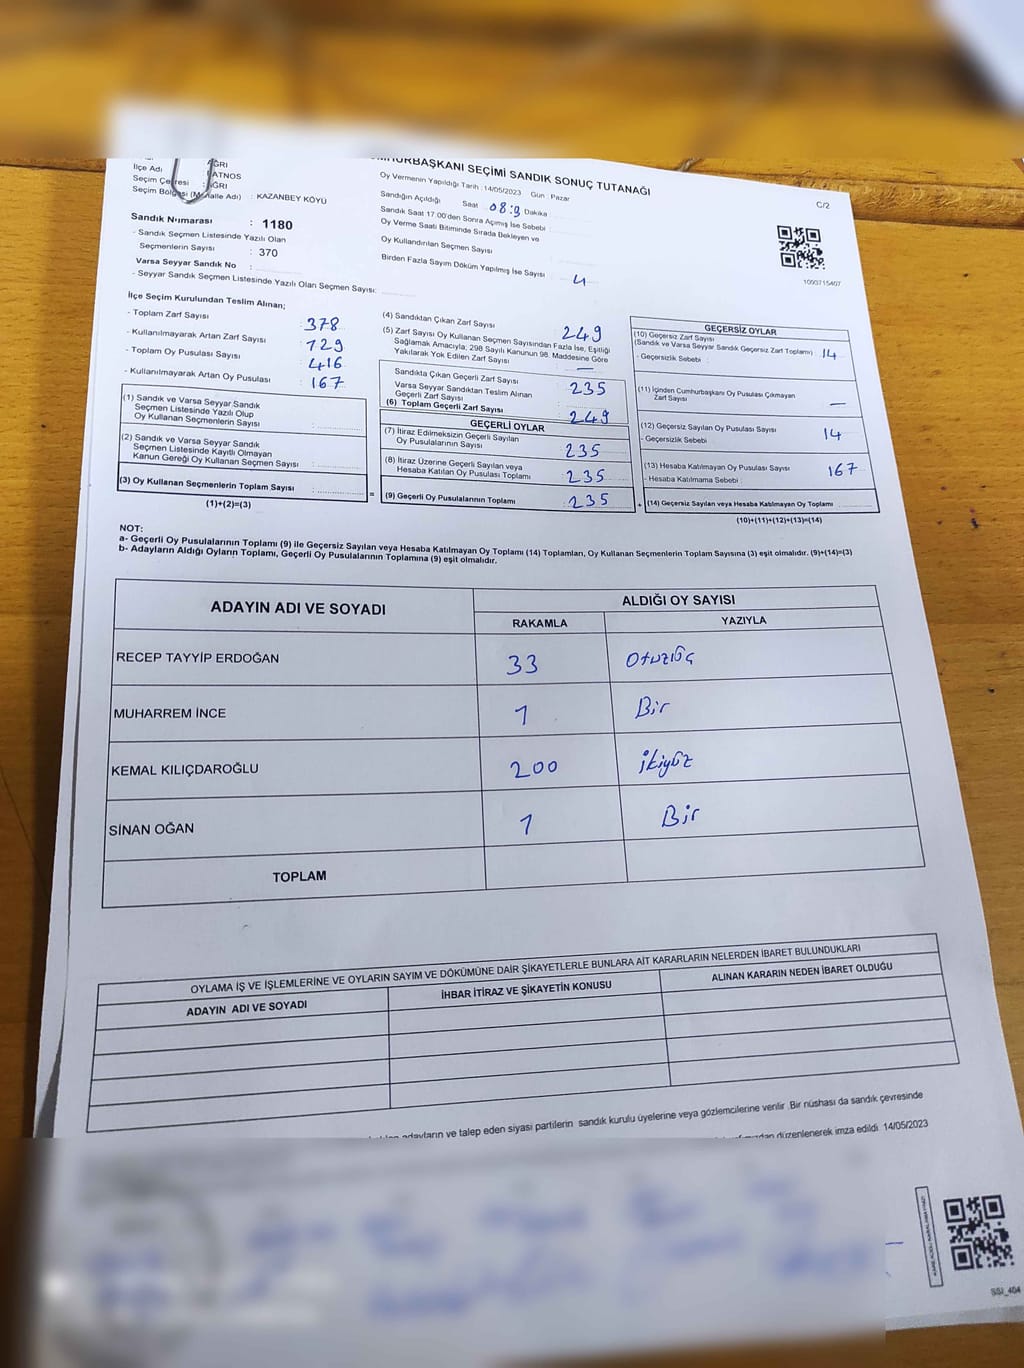 CUMHURBAŞKANI SEÇİMİ SANDIK SONUÇ TUTANAĞI
C/2
AĞRI
İlçe Adı : PATNOS
Seçim Çevresi : AĞRI
Seçim Bölgesi (Mahalle Adı) : KAZANBEY KÖYÜ
Sandık Numarası : 1180
- Sandık Seçmen Listesinde Yazılı Olan
Seçmenlerin Sayısı : 370
Varsa Seyyar Sandık No :
- Seyyar Sandık Seçmen Listesinde Yazılı Olan Seçmen Sayısı:
Oy Vermenin Yapıldığı Tarih : 14/05/2023 Gün : Pazar
Sandığın Açıldığı Saat 08:9 Dakika
Sandık Saat 17.00'den Sonra Açımış İse Sebebi :
Oy Verme Saati Bitiminde Sırada Bekleyen ve
Oy Kullandırılan Seçmen Sayısı :
Birden Fazla Sayım Döküm Yapılmış İse Sayısı : 4
1093715407
İlçe Seçim Kurulundan Teslim Alınan;
- Toplam Zarf Sayısı : 378
- Kullanılmayarak Artan Zarf Sayısı : 129
- Toplam Oy Pusulası Sayısı : 416
- Kullanılmayarak Artan Oy Pusulası : 167
(1) Sandık ve Varsa Seyyar Sandık
Seçmen Listesinde Yazılı Olup
Oy Kullanan Seçmenlerin Sayısı :
(2) Sandık ve Varsa Seyyar Sandık
Seçmen Listesinde Kayıtlı Olmayan
Kanun Gereği Oy Kullanan Seçmen Sayısı :
(3) Oy Kullanan Seçmenlerin Toplam Sayısı :
(1)+(2)=(3)
(4) Sandıktan Çıkan Zarf Sayısı : 249
(5) Zarf Sayısı Oy Kullanan Seçmen Sayısından Fazla İse, Eşitliği
Sağlamak Amacıyla; 298 Sayılı Kanunun 98. Maddesine Göre
Yakılarak Yok Edilen Zarf Sayısı : —
Sandıkta Çıkan Geçerli Zarf Sayısı : 235
Varsa Seyyar Sandıktan Teslim Alınan
Geçerli Zarf Sayısı :
(6) Toplam Geçerli Zarf Sayısı : 249
GEÇERLİ OYLAR
(7) İtiraz Edilmeksizin Geçerli Sayılan
Oy Pusulalarının Sayısı : 235
(8) İtiraz Üzerine Geçerli Sayılan veya
Hesaba Katılan Oy Pusulası Toplamı : 235
= (9) Geçerli Oy Pusulalarının Toplamı : 235
GEÇERSİZ OYLAR
(10) Geçersiz Zarf Sayısı
(Sandık ve Varsa Seyyar Sandık Geçersiz Zarf Toplamı) : 14
- Geçersizlik Sebebi :
(11) İçinden Cumhurbaşkanı Oy Pusulası Çıkmayan
Zarf Sayısı : —
(12) Geçersiz Sayılan Oy Pusulası Sayısı : 14
- Geçersizlik Sebebi :
(13) Hesaba Katılmayan Oy Pusulası Sayısı : 167
- Hesaba Katılmama Sebebi :
+ (14) Geçersiz Sayılan veya Hesaba Katılmayan Oy Toplamı :
(10)+(11)+(12)+(13)=(14)
NOT:
a- Geçerli Oy Pusulalarının Toplamı (9) ile Geçersiz Sayılan veya Hesaba Katılmayan Oy Toplamı (14) Toplamları, Oy Kullanan Seçmenlerin Toplam Sayısına (3) eşit olmalıdır. (9)+(14)=(3)
b- Adayların Aldığı Oyların Toplamı, Geçerli Oy Pusulalarının Toplamına (9) eşit olmalıdır.
ADAYIN ADI VE SOYADI ALDIĞI OY SAYISI
RAKAMLA YAZIYLA
RECEP TAYYİP ERDOĞAN 33 Otuzüç
MUHARREM İNCE 1 Bir
KEMAL KILIÇDAROĞLU 200 İkiyüz
SİNAN OĞAN 1 Bir
TOPLAM
OYLAMA İŞ VE İŞLEMLERİNE VE OYLARIN SAYIM VE DÖKÜMÜNE DAİR ŞİKAYETLERLE BUNLARA AİT KARARLARIN NELERDEN İBARET BULUNDUKLARI
ADAYIN ADI VE SOYADI İHBAR İTİRAZ VE ŞİKAYETİN KONUSU ALINAN KARARIN NEDEN İBARET OLDUĞU
adayların ve talep eden siyasi partilerin sandık kurulu üyelerine veya gözlemcilerine verilir .Bir nüshası da sandık çevresinde
düzenlenerek imza edildi. 14/05/2023
SSI_404